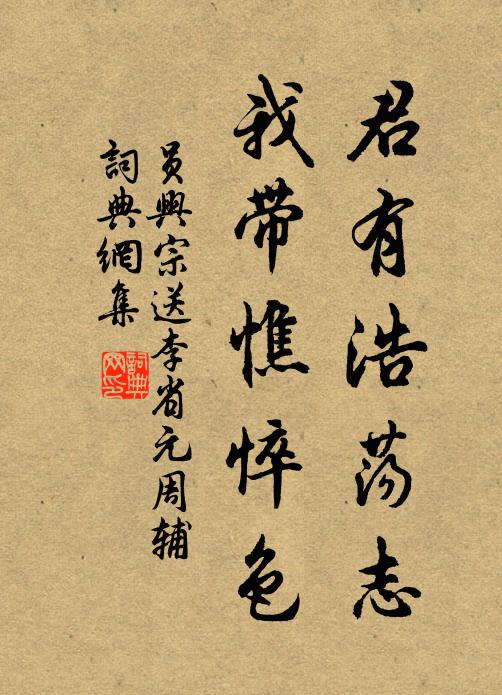 君有浩荡志
我带憔悴色
员興宗送李省元周辅
詞典網集
詞典网印